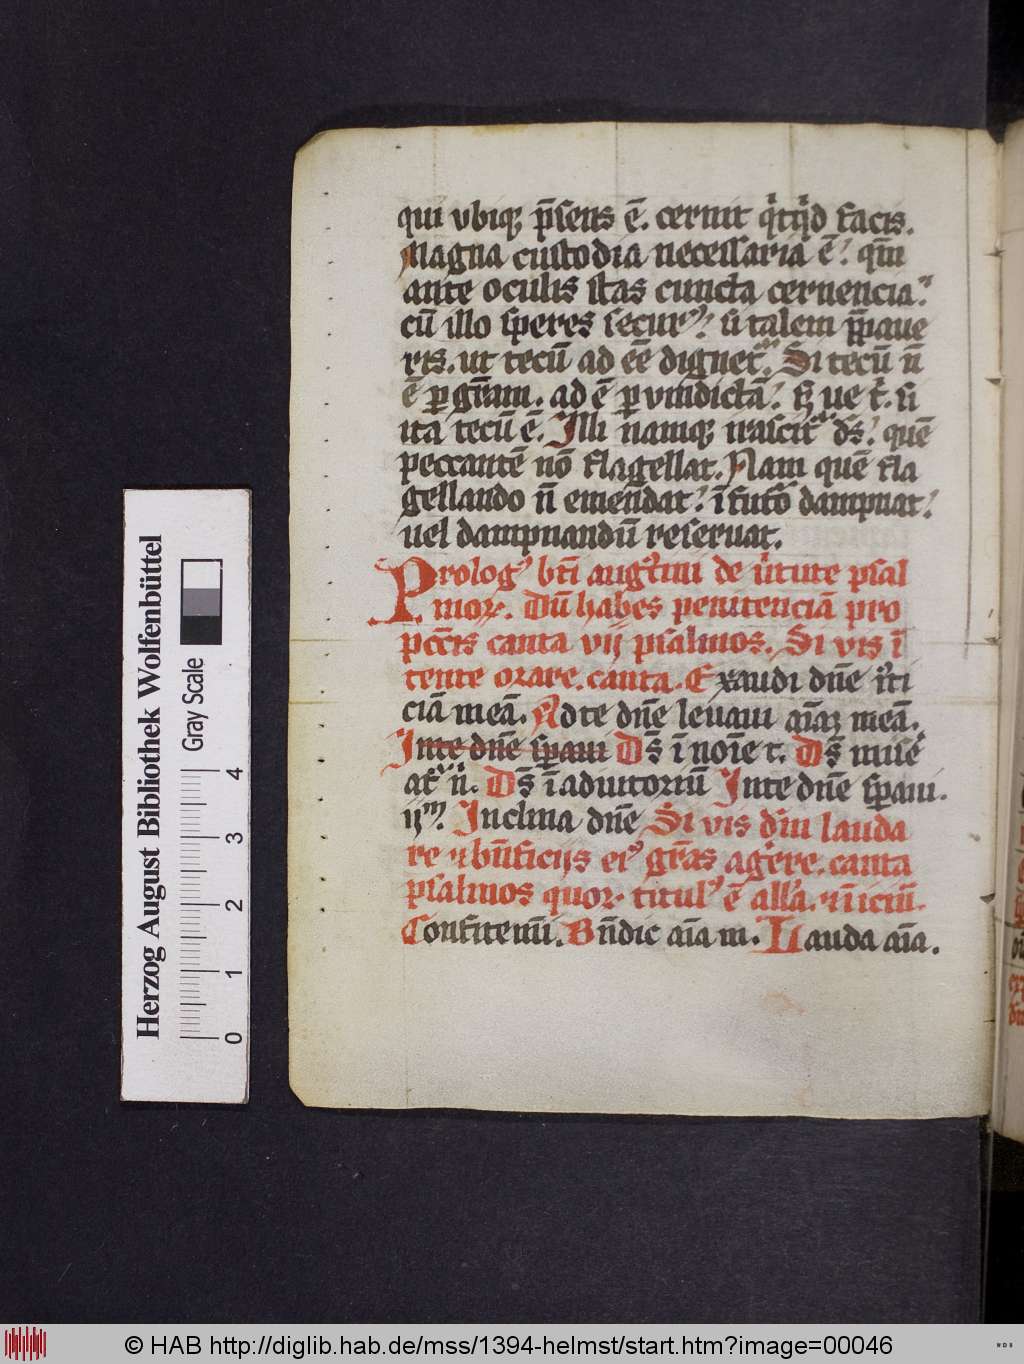 qui vbiqꝫ p̄sens ē. cernit qͥcqͥd facis.
Magna custodia necessaria ē! qm̄
ante oculis stas cuncta cernencia.
cū illo speres securꝰ! si talem p̄paue
ris. ut tecū ad eē dignetᷣ. Si tecū n̄
ē ꝑ gr̄am. ad ē ꝑ vindictā! sꝫ ue tͥ. si
ita tecū ē. Illi namqꝫ irascitᷣ ds̄! quē
peccantē nō flagellat. Nam quē fla
gellando n̄ emendat! ī futō dampnat!
uel dampnandū reseruat.
Prologꝰ bt̄i augᷤtini de uͥtute psal
moꝝ. Dū habes penitenciā pro
pcc̄is canta vij psalmos. Si vis ī
tente orare. canta. Exaudi dn̄e iᷤti
ciā meā. Ad te dn̄e leuaui aīaꝫ meā.
In te dn̄e sꝑaui Ds̄ ī noīe t. Ds̄ misē
atᷣ n̄. Ds̄ ī adiutoriū In te dn̄e sꝑaui.
ijᵐ. Inclina dn̄e Si vis dm̄ lauda
re ⁊ bn̄ficijs eiꝰ gr̄as agere. canta
psalmos quoꝝ titulꝰ ē all'a. ⁊ īiciū.
Confitemī. Bn̄dic aīa m. Lauda aīa.
Herzog August Bibliothek Wolfenbüttel
Gray Scale
0 1 2 3 4
© HAB http://diglib.hab.de/mss/1394-helmst/start.htm?image=00046